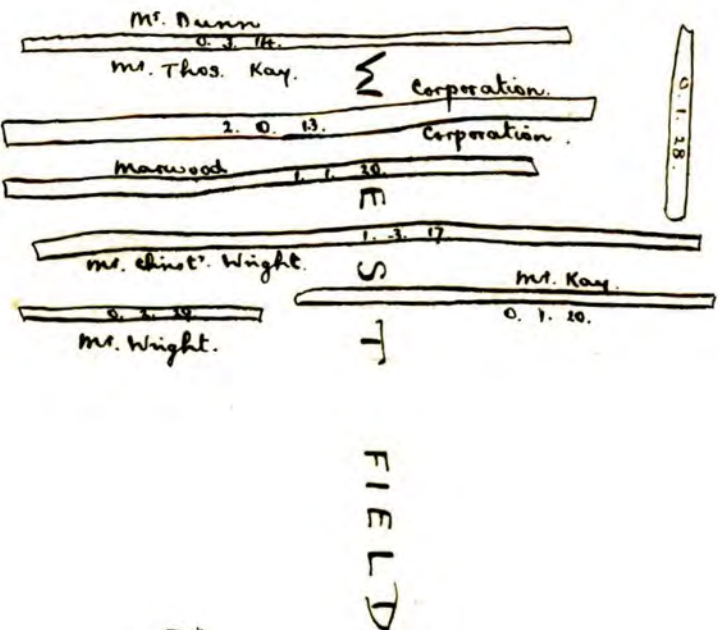 Mr. Dunn
0. 3. 14.
Mr. Thos. Kay.
Corporation.
2. 0. 13.
Corporation.
Marwood
1. 1. 20.
0. 1. 28.
1. 3. 17
Mr. Christr. Wright.
Mr. Kay.
0. 1. 20.
0. 2. 20
Mr. Wright.
WEST
FIELD